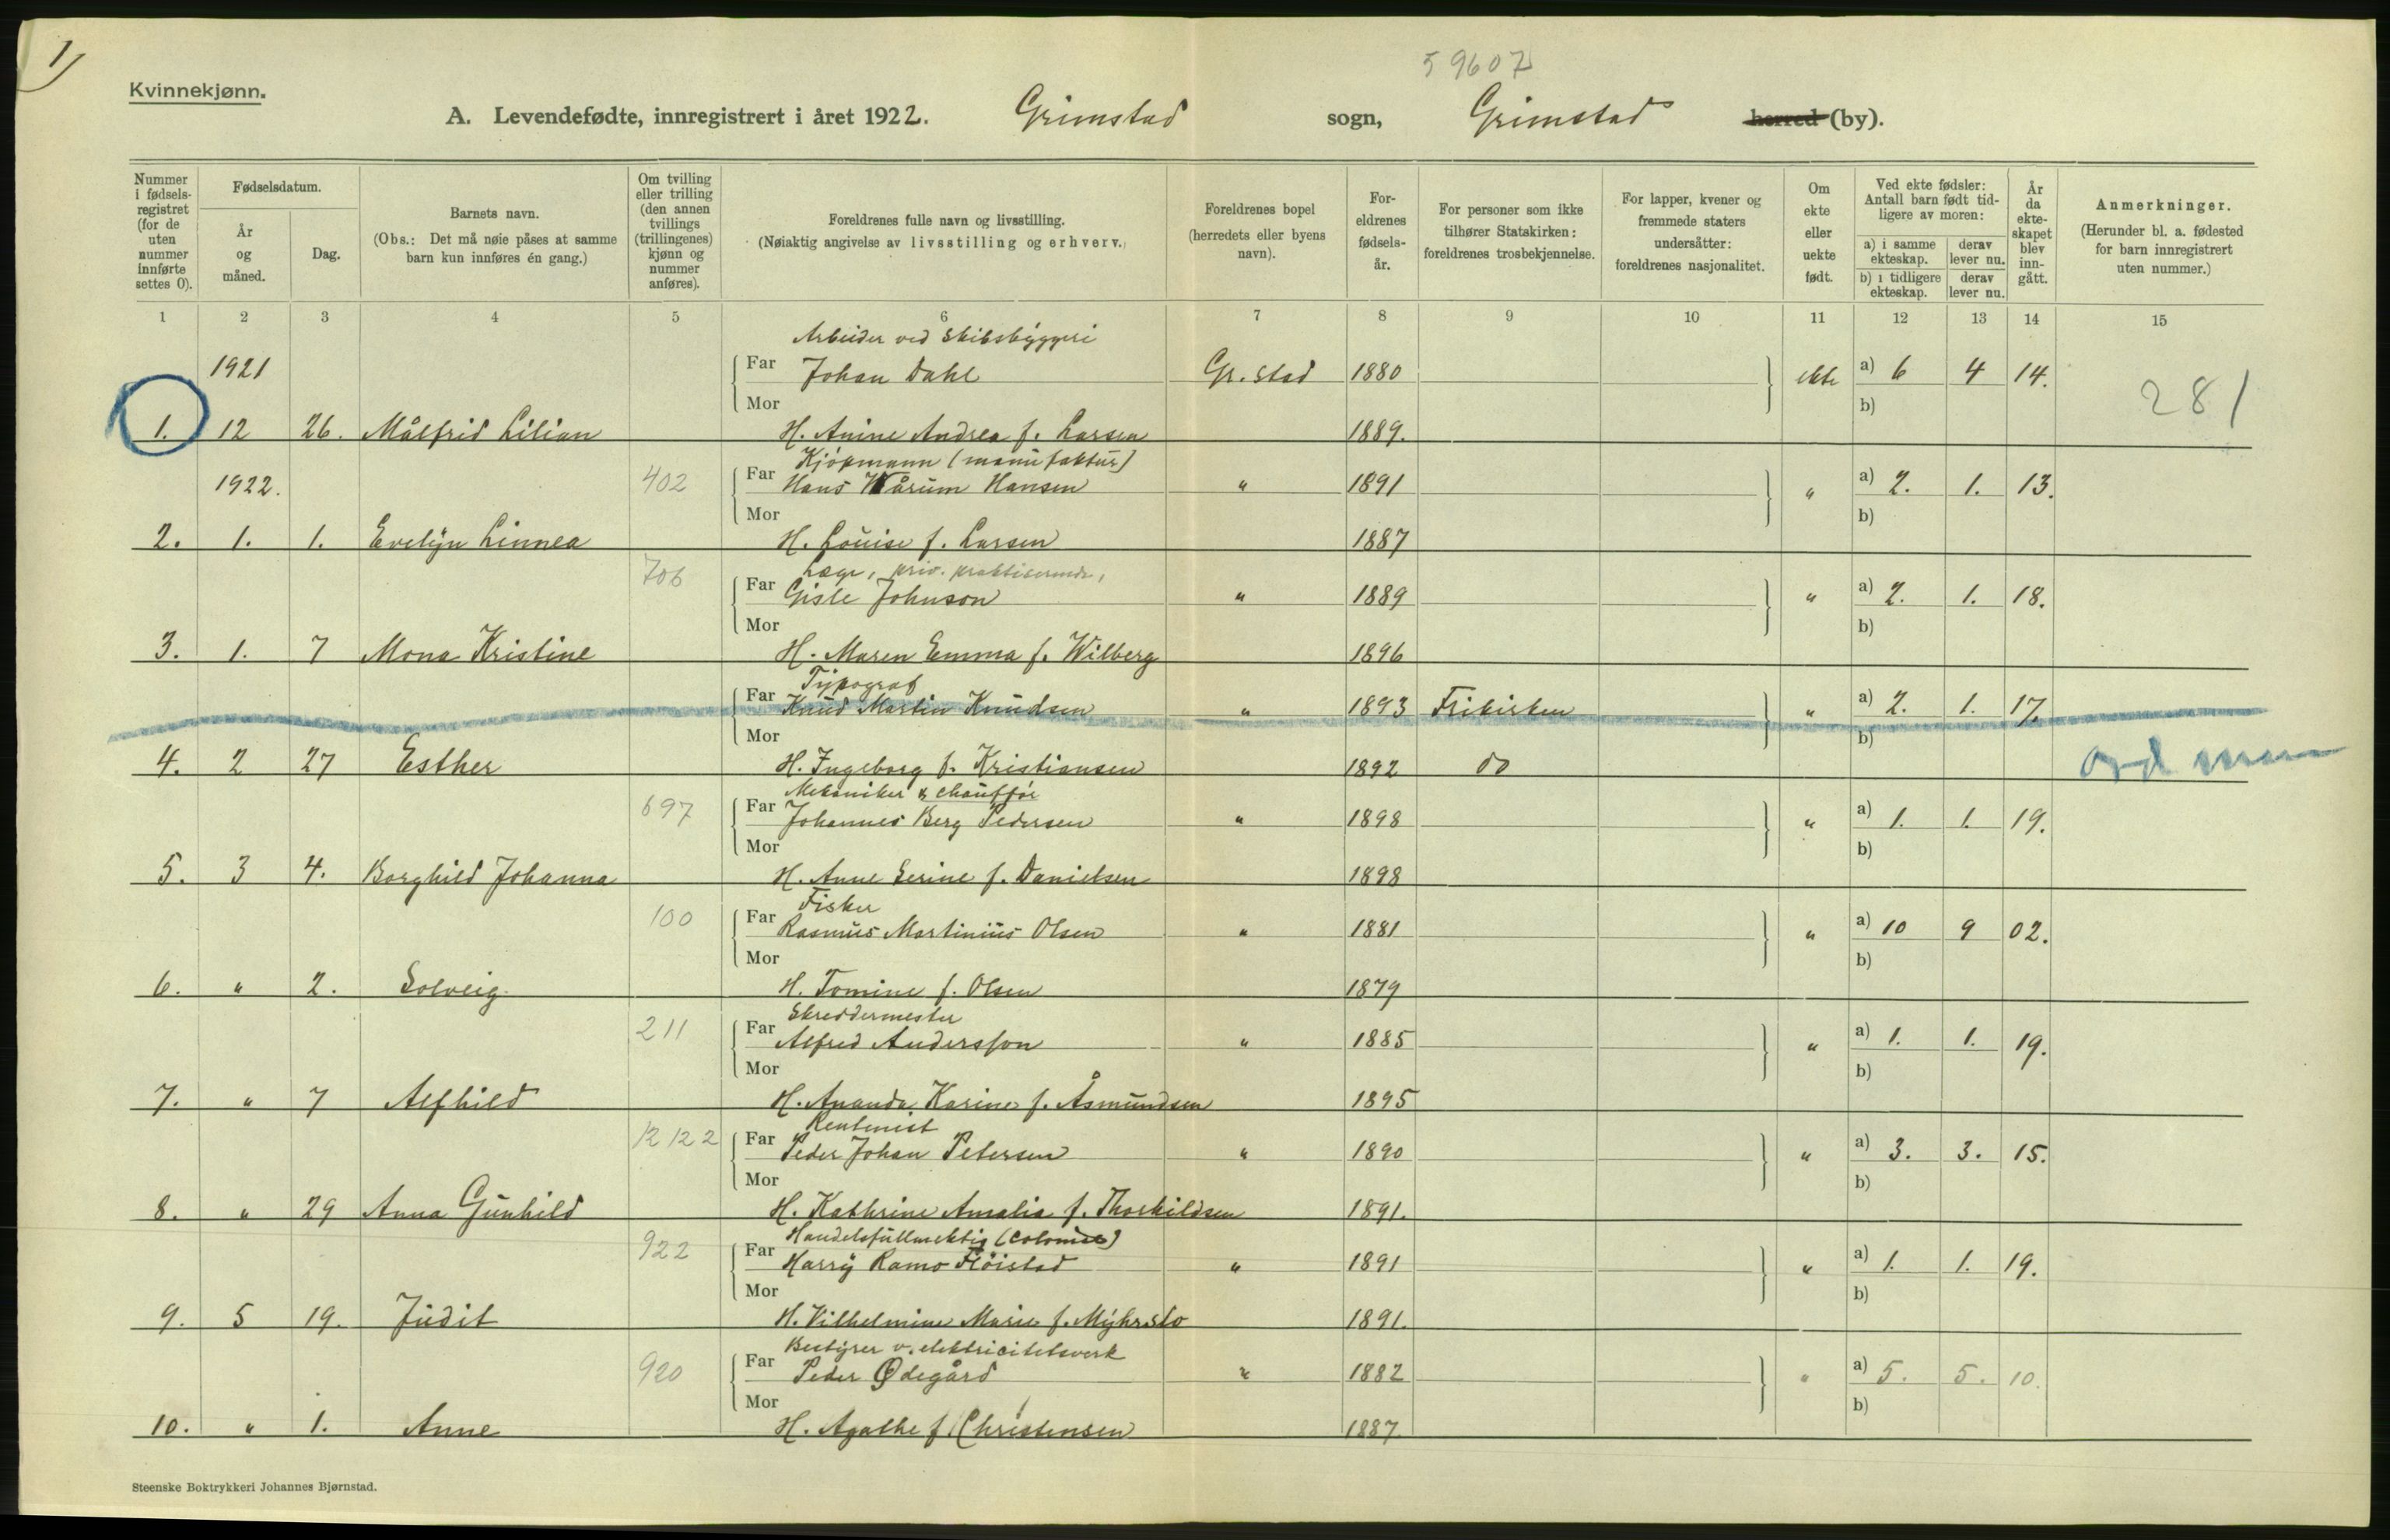 1)
59607
Kvinnekjønn.
A. Levendefødte, innregistrert i året 1922. Grimstad sogn, Grimstad herred (by).
Nummer i fødselsregistret (for de uten nummer innførte settes 0).
Fødselsdatum.
År og måned.
Dag.
Barnets navn.
(Obs.: Det må nøie påses at samme barn kun innføres én gang.)
Om tvilling eller trilling (den annen tvillings (trillingenes) kjønn og nummer anføres).
Foreldrenes fulle navn og livsstilling.
(Nøiaktig angivelse av livsstilling og erhverv.)
Foreldrenes bopel (herredets eller byens navn).
Foreldrenes fødselsår.
For personer som ikke tilhører Statskirken: foreldrenes trosbekjennelse.
For lapper, kvener og fremmede staters undersåtter: foreldrenes nasjonalitet.
Om ekte eller uekte født.
Ved ekte fødsler: Antall barn født tidligere av moren:
a) i samme ekteskap. derav lever nu.
b) i tidligere ekteskap. derav lever nu.
År da ekteskapet blev inngått.
Anmerkninger.
(Herunder bl. a. fødested for barn innregistrert uten nummer.)
1 2 3 4 5 6 7 8 9 10 11 12 13 14 15
Arbeider ved Skibsbyggeri
1921 Far Johan Dahl Gr.stad 1880 ekte a) 6 4 14.
Mor b) 281
1. 12 26. Målfrid Lilian H. Anine Andrea f. Larsen 1889.
Kjøpmann (manufaktur)
1922. 402 Far Hans Wårum Hansen " 1891 " a) 2. 1. 13.
Mor b)
2. 1. 1. Evelyn Linnea H. Louise f. Larsen 1887
Læge, priv. praktiserende,
706 Far Gisle Johnson " 1889 " a) 2. 1. 18.
Mor b)
3. 1. 7 Mona Kristine H. Maren Emma f. Wilberg 1896
Typograf
Far Knud Martin Knudsen " 1893 Frikirken " a) 2. 1. 17.
Mor b)
4. 2 27 Esther H. Ingeborg f. Kristiansen 1892 do
Mekaniker & chauffør
697 Far Johannes Berg Pedersen " 1898 " a) 1. 1. 19.
Mor b)
5. 3 4. Borghild Johanna H. Anne Serine f. Danielsen 1898
Fisker
100 Far Rasmus Martinius Olsen " 1881 " a) 10 9 02.
Mor b)
6. " 2. Solveig H. Tomine f. Olsen 1879
Skreddermester
211 Far Alfred Andersson " 1885 " a) 1. 1. 19.
Mor b)
7. " 7 Alfhild H. Ananda Karine f. Åsmundsen 1895
Rentenist
12122 Far Peder Johan Petersen " 1890 " a) 3. 3. 15.
Mor b)
8. " 29 Anna Gunhild H. Kathrine Amalia f. Thorkildsen 1891.
Handelsfullmektig
922 Far Harry Ramo Fløistad " 1891 " a) 1. 1. 19.
Mor b)
9. 5 19. Judit H. Vilhelmine Marie f. Myhrsto 1891.
Bestyrer v. elektricitetsverk
920 Far Peder Ødegård " 1882 " a) 5. 5. 10.
Mor b)
10. " 1. Anne H. Agathe f. Christensen 1887
Steenske Boktrykkeri Johannes Bjørnstad.